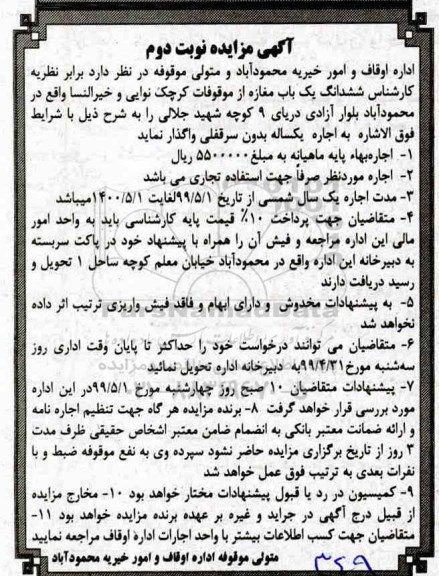 آگهی مزایده نوبت دوم
اداره اوقاف و امور خیریه محمودآباد و متولی موقوفه در نظر دارد برابر نظریه
کارشناس ششدانگ یک باب مغازه از موقوفات کرچک نوایی و خیرالنسا واقع در
محمودآباد بلوار آزادی دریای ۹ کوچه شهید جلالی را به شرح ذیل با شرایط
فوق الاشاره به اجاره یکساله بدون سرقفلی واگذار نماید
۱- اجاره‌بهاء پایه ماهیانه به مبلغ ۵۵۰۰۰۰۰ ریال
۲- اجاره موردنظر صرفاً جهت استفاده تجاری می باشد
۳- مدت اجاره یک سال شمسی از تاریخ ۹۹/۵/۱لغایت ۱۴۰۰/۵/۱میباشد
۴- متقاضیان جهت پرداخت ۱۰٪ قیمت پایه کارشناسی باید به واحد امور
مالی این اداره مراجعه و فیش آن را همراه با پیشنهاد خود در پاکت سربسته
به دبیرخانه این اداره واقع در محمودآباد خیابان معلم کوچه ساحل ۱ تحویل و
رسید دریافت دارند
۵- به پیشنهادات مخدوش و دارای ابهام و فاقد فیش واریزی ترتیب اثر داده
نخواهد شد
۶- متقاضیان می توانند درخواست خود را حداکثر تا پایان وقت اداری روز
سه‌شنبه مورخ ۹۹/۴/۳۱به دبیرخانه اداره تحویل نمائید
۷- پیشنهادات متقاضیان ۱۰ صبح روز چهارشنبه مورخ ۹۹/۵/۱در این اداره
مورد بررسی قرار خواهد گرفت ۸- برنده مزایده هر گاه جهت تنظیم اجاره نامه
و ارائه ضمانت معتبر بانکی به انضمام ضامن معتبر اشخاص حقیقی ظرف مدت
۳ روز از تاریخ برگزاری مزایده حاضر نشود سپرده وی به نفع موقوفه ضبط و با
نفرات بعدی به ترتیب فوق عمل خواهد شد
۹- کمیسیون در رد یا قبول پیشنهادات مختار خواهد بود ۱۰- مخارج مزایده
از قبیل درج آگهی در جراید و غیره بر عهده برنده مزایده خواهد بود ۱۱-
متقاضیان جهت کسب اطلاعات بیشتر با واحد اجارات اداره اوقاف مراجعه نمایید
متولی موقوفه اداره اوقاف و امور خیریه محمودآباد
۳۶۹